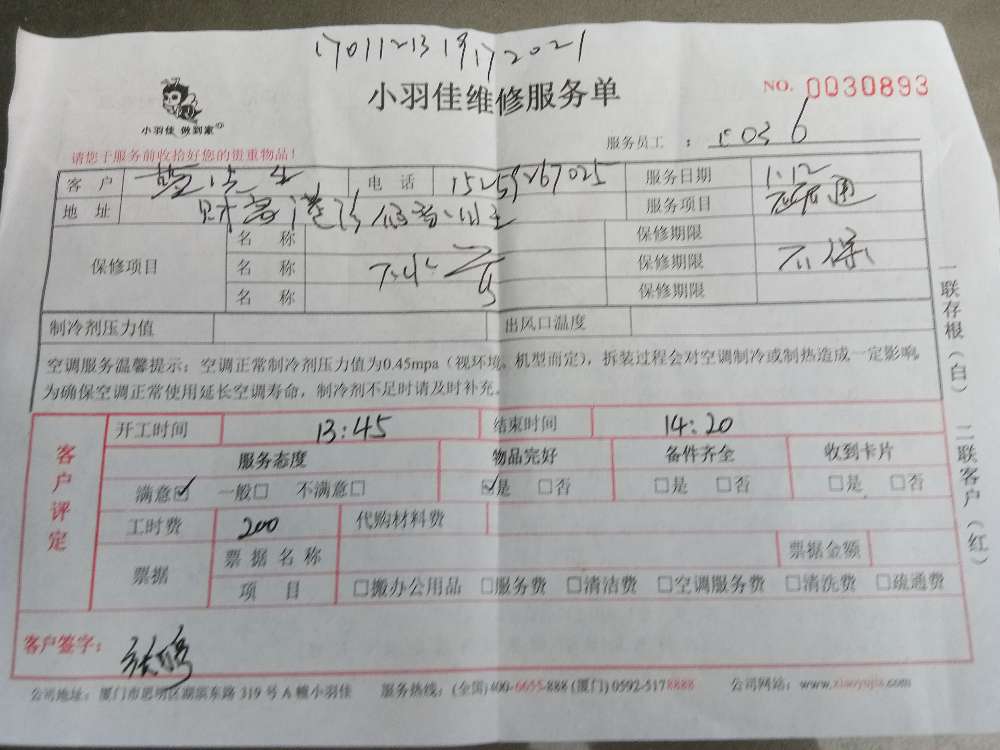 小羽佳维修服务单
NO. 0030893
小羽佳 做到家
服务员工 :
请您于服务前收拾好您的贵重物品!
客 户 电 话 15259267025 服务日期 1.12
地 址 服务项目
名 称 保修期限
保修项目 名 称 保修期限 不保
名 称 保修期限
制冷剂压力值 出风口温度
空调服务温馨提示:空调正常制冷剂压力值为0.45mpa(视环境、机型而定),拆装过程会对空调制冷或制热造成一定影响,
为确保空调正常使用延长空调寿命,制冷剂不足时请及时补充。
一联存根(白) 二联客户(红)
客户评定
开工时间 13:45 结束时间 14:20
服务态度 物品完好 备件齐全 收到卡片
满意☑ 一般□ 不满意□ ☑是 □否 □是 □否 □是 □否
工时费 200 代购材料费
票据 票据名称 票据金额
项 目 □搬办公用品 □服务费 □清洁费 □空调服务费 □清洗费 □疏通费
客户签字:
公司地址:厦门市思明区湖滨东路 319 号 A 幢小羽佳 服务热线:(全国)400-6655-888 (厦门) 0592-5178888 公司网站:www.xiaoyujia.com